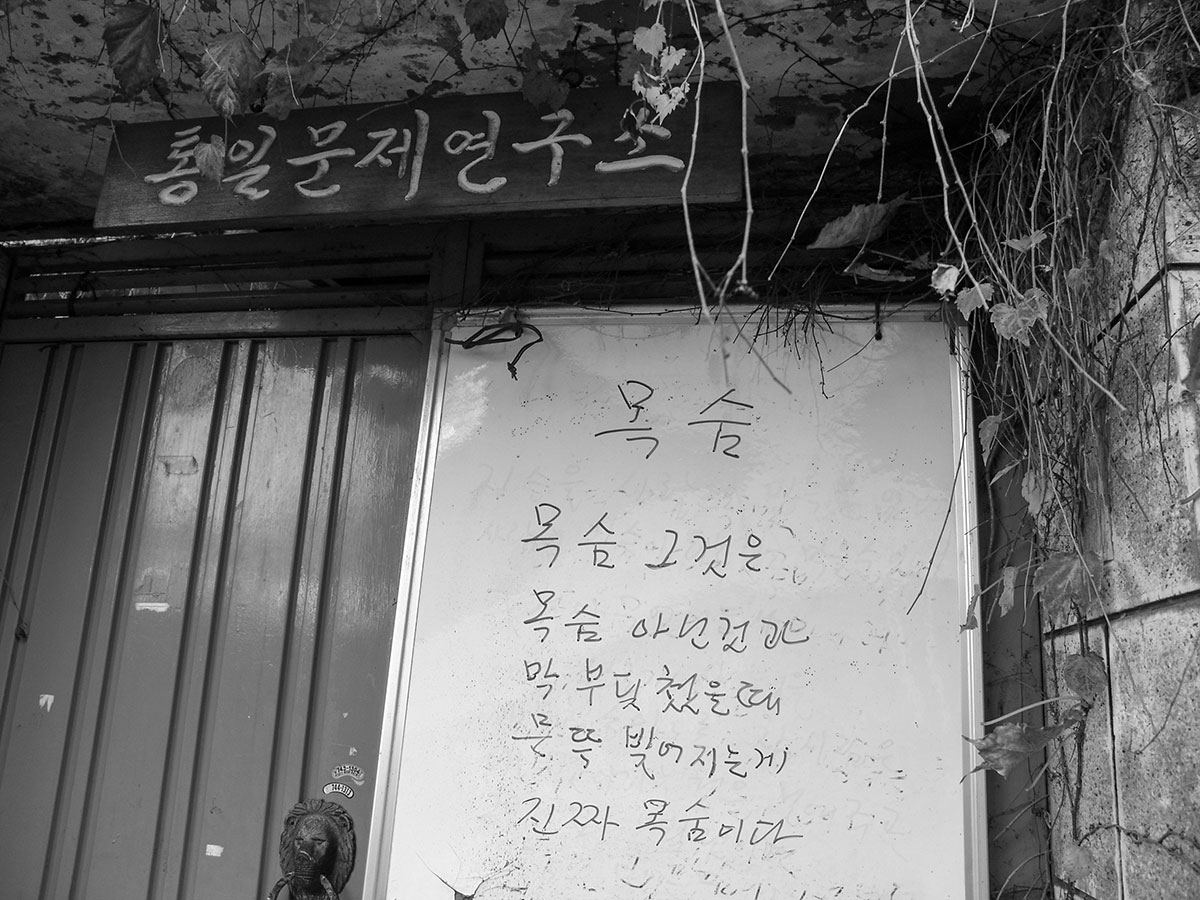 통일문제연구소
목숨
목숨 그것은
목숨 아닌것과
막 부딪쳤을때
문뜩 빚어지는게
진짜 목숨이다